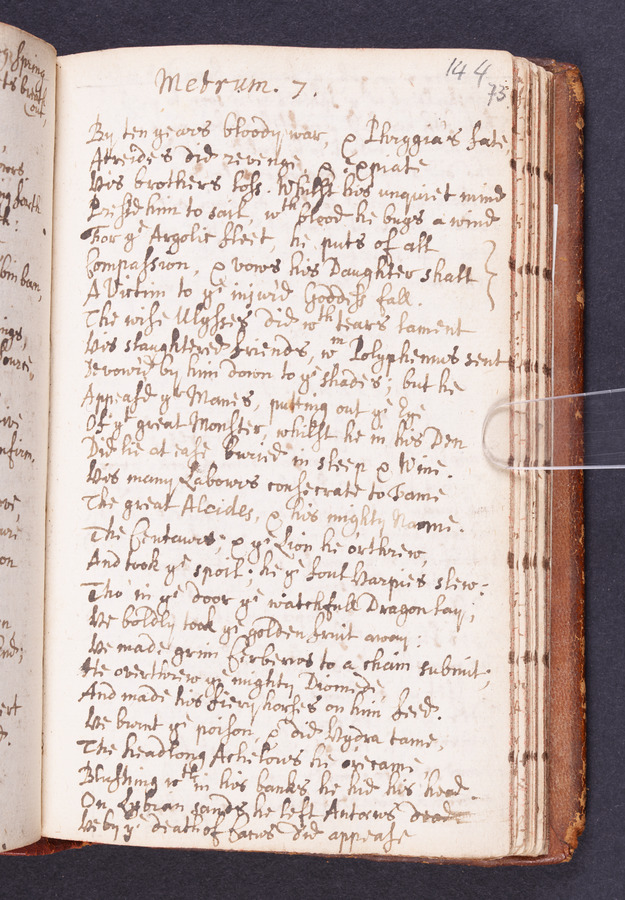 144
73
Metrum. 7.
By ten years bloody war, & Phrygia's fate
Atreides did revenge, & expiate
His brothers loss. Whilst his unquiet mind
Press'd him to sail, wth blood he buys a wind
For ye Argolic fleet, he puts of all
Compassion, & vows his Daughter shall
A Victim to ye injur'd Goddess fall.
The wise Ulysses did wth tears lament
His slaughtered friends, wm Polyphemus sent
Devowr'd by him down to ye shades; but he
Appeas'd yr Manes, putting out ye Eye
Of yt great Monster, whilst he in his Den
Did lie at ease buried in sleep & Wine.
His many Labowrs consecrate to Fame
The great Alcides, & his mighty Name.
The Centaurs, & ye Lion he o'rthrew,
And took ye spoil; he ye foul Harpies slew:
Tho' in ye door ye watchfull Dragon lay;
He boldly took ye golden fruit away:
He made grim Cerberus to a chain submit;
He overthrew ye mighty Diomede,
And made his fiery horses on him feed.
He burnt ye poison, & did Hydra tame,
The headlong Achelous he o'recame,
Blushing wth in his banks he hid his head.
On Lybian sands he left Antæus dead
He by ye death of Cacus did appease